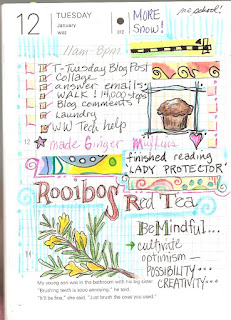 12 TUESDAY
January
012
MORE Snow!
no school!
11am-8pm
T-Tuesday Blog Post
Collage
answer emails
WALK! 14,000 steps
Blog comments
Laundry
WW Tech help
12
made Ginger Muffins
finished reading
"LADY PROTECTOR"
Rooibos Red Tea
Be Mindful...
cultivate
optimism—
POSSIBILITY...
CREATIVITY...
My young son was in the bathroom with his big sister.
"Brushing teeth is sooo annoying," he said.
"It'll be fine," she said, "Just brush the ones you used."